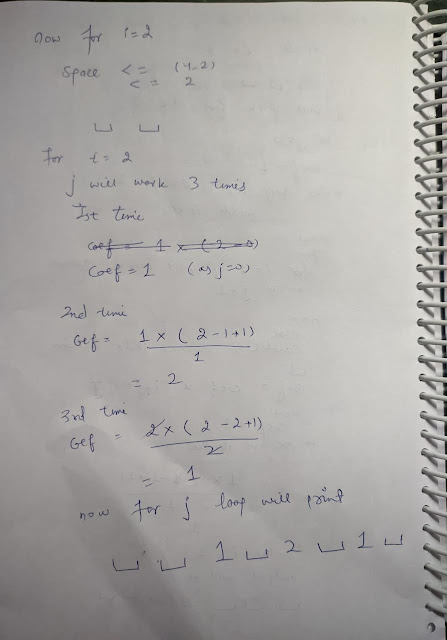 now for i=2
space <= (4-2)
<= 2
⎵ ⎵
for i=2
j will work 3 times
Ist time
Coef = 1 x (2-0)
Coef = 1 (as j=0)
2nd time
Coef = 1 x (2-1+1)
1
= 2
3rd time
Coef = 2 x (2-2+1)
2
= 1
now for j loop will print
⎵ ⎵ 1 ⎵ 2 ⎵ 1 ⎵